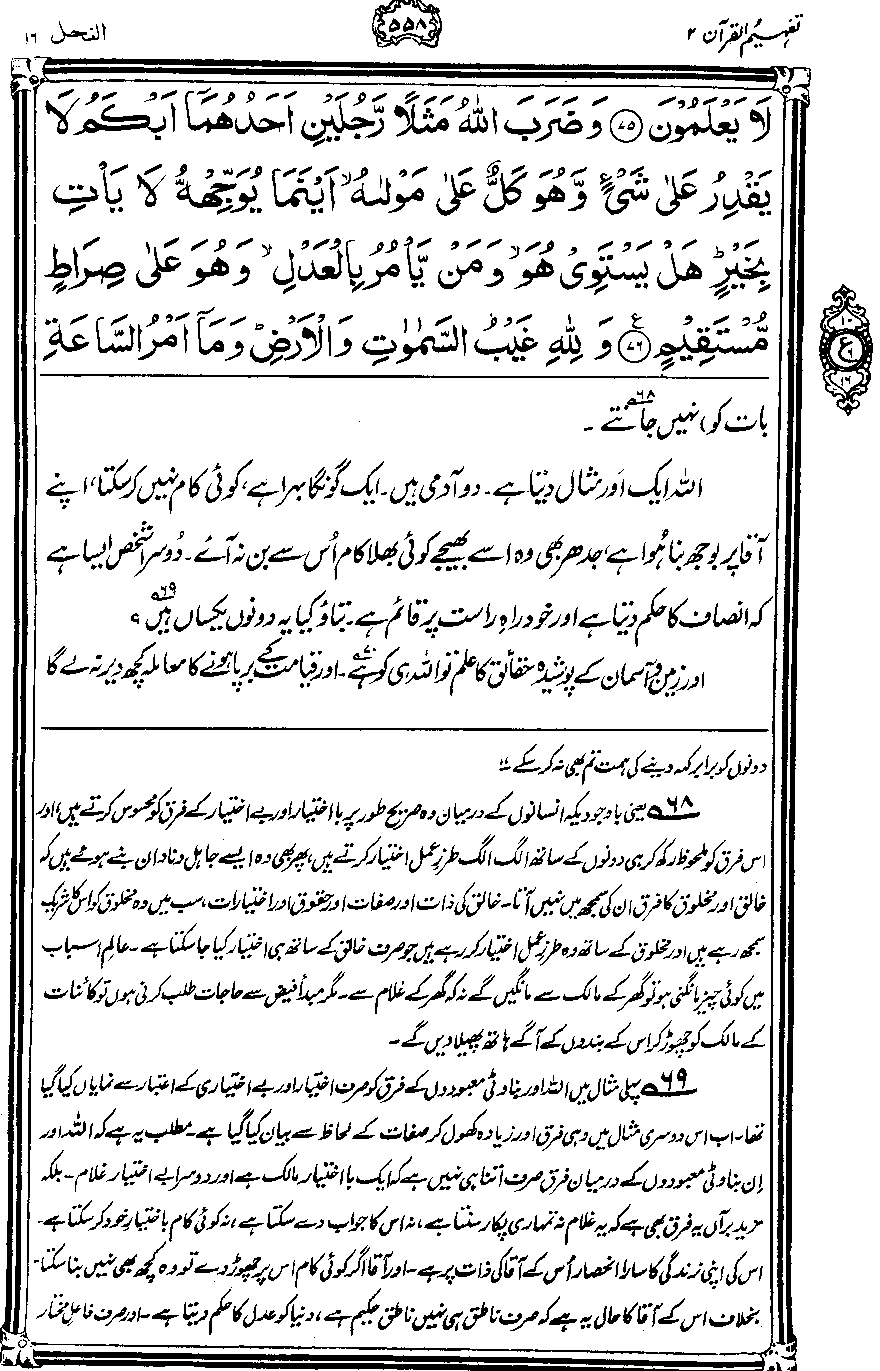 تفہیم القرآن ۲
۵۵۸
النحل ۱۶
لَا يَعْلَمُوْنَ ﴿۷۵﴾ وَضَرَبَ اللّٰهُ مَثَلًا رَّجُلَيْنِ اَحَدُهُمَاۤ اَبْكَمُ لَا
يَقْدِرُ عَلٰى شَيْءٍ وَّهُوَ كَلٌّ عَلٰى مَوْلٰىهُ ۙ اَيْنَمَا يُوَجِّهْهُّ لَا يَاْتِ
بِخَيْرٍ ؕ هَلْ يَسْتَوِيْ هُوَ ۙ وَمَنْ يَّاْمُرُ بِالْعَدْلِ ۙ وَهُوَ عَلٰى صِرَاطٍ
مُّسْتَقِيْمٍ ﴿۷۶﴾ ع وَ لِلّٰهِ غَيْبُ السَّمٰوٰتِ وَالْاَرْضِ ؕ وَمَاۤ اَمْرُ السَّاعَةِ
۱۰
ع
۹
۱۶
بات کو) نہیں جانتے۶۸۔
اللہ ایک اور مثال دیتا ہے۔ دو آدمی ہیں۔ ایک گونگا بہرا ہے، کوئی کام نہیں کر سکتا، اپنے
آقا پر بوجھ بنا ہُوا ہے، جدھر بھی وہ اسے بھیجے کوئی بھلا کام اُس سے بن نہ آئے۔ دُوسرا شخص ایسا ہے
کہ انصاف کا حکم دیتا ہے اور خود راہِ راست پر قائم ہے۔ بتاؤ کیا یہ دونوں یکساں ہیں۶۹؟
اور زمین و آسمان کے پوشیدہ حقائق کا علم تو اللہ ہی کو ہے۷۰۔ اور قیامت کے برپا ہونے کا معاملہ کچھ دیر نہ لے گا
دونوں کو برابر کہہ دینے کی ہمت تم بھی نہ کر سکے۔"
۶۸ یعنی باوجودیکہ انسانوں کے درمیان وہ صریح طور پر بااختیار اور بے اختیار کے فرق کو محسوس کرتے ہیں، اور
اس فرق کو ملحوظ رکھ کر ہی دونوں کے ساتھ الگ الگ طرزِ عمل اختیار کرتے ہیں، پھر بھی وہ ایسے جاہل و نادان بنے ہوئے ہیں کہ
خالق اور مخلوق کا فرق ان کی سمجھ میں نہیں آتا۔ خالق کی ذات اور صفات اور حقوق اور اختیارات، سب میں وہ مخلوق کو اس کا شریک
سمجھ رہے ہیں اور مخلوق کے ساتھ وہ طرزِ عمل اختیار کر رہے ہیں جو صرف خالق کے ساتھ ہی اختیار کیا جا سکتا ہے۔ عالمِ اسباب
میں کوئی چیز مانگنی ہو تو گھر کے مالک سے مانگیں گے نہ کہ گھر کے غلام سے۔ مگر مبدأ فیض سے حاجات طلب کرنی ہوں تو کائنات
کے مالک کو چھوڑ کر اس کے بندوں کے آگے ہاتھ پھیلا دیں گے۔
۶۹ پہلی مثال میں اللہ اور بناوٹی معبودوں کے فرق کو صرف اختیار اور بے اختیاری کے اعتبار سے نمایاں کیا گیا
تھا۔ اب اس دوسری مثال میں وہی فرق اور زیادہ کھول کر صفات کے لحاظ سے بیان کیا گیا ہے۔ مطلب یہ ہے کہ اللہ اور
اِن بناوٹی معبودوں کے درمیان فرق صرف اتنا ہی نہیں ہے کہ ایک بااختیار مالک ہے اور دوسرا بے اختیار غلام۔ بلکہ
مزید برآں یہ فرق بھی ہے کہ یہ غلام نہ تمہاری پکار سنتا ہے، نہ اس کا جواب دے سکتا ہے، نہ کوئی کام باختیارِ خود کر سکتا ہے۔
اس کی اپنی زندگی کا سارا انحصار اُس کے آقا کی ذات پر ہے۔ اور آقا اگر کوئی کام اس پر چھوڑ دے تو وہ کچھ بھی نہیں بنا سکتا۔
بخلاف اس کے آقا کا حال یہ ہے کہ صرف ناطق ہی نہیں ناطقِ حکیم ہے، دنیا کو عدل کا حکم دیتا ہے۔ اور صرف فاعلِ مختار